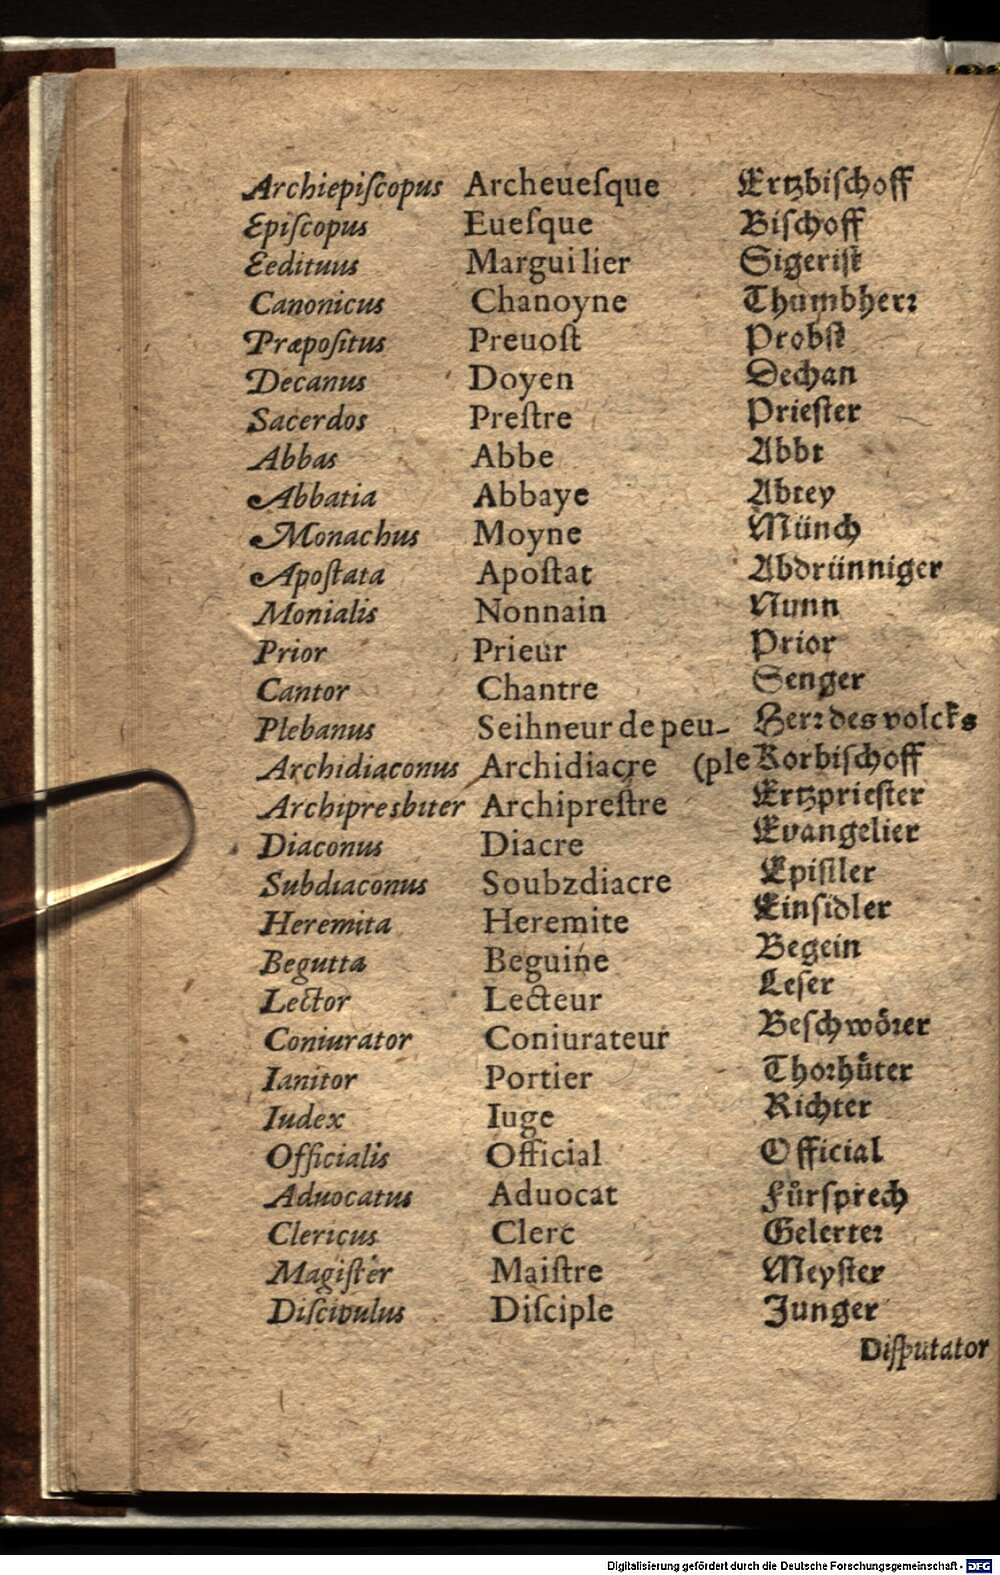 Archiepiſcopus Archeueſque Ertzbiſchoff
Epiſcopus Eueſque Biſchoff
Eedituus Marguilier Sigeriſt
Canonicus Chanoyne Thumbherꝛ
Præpoſitus Preuoſt Probſt
Decanus Doyen Dechan
Sacerdos Preſtre Prieſter
Abbas Abbe Abbt
Abbatia Abbaye Abtey
Monachus Moyne Münch
Apoſtata Apoſtat Abdrünniger
Monialis Nonnain Nunn
Prior Prieur Prior
Cantor Chantre Senger
Plebanus Seihneur de peu- Herꝛ des volcks
Archidiaconus Archidiacre (ple Korbiſchoff
Archipresbiter Archipreſtre Ertzprieſter
Diaconus Diacre Evangelier
Subdiaconus Soubzdiacre Epiſtler
Heremita Heremite Einſidler
Begutta Beguine Begein
Lector Lecteur Leſer
Coniurator Coniurateur Beſchwoͤꝛer
Ianitor Portier Thoꝛhuͤter
Iudex Iuge Richter
Officialis Official Official
Aduocatus Aduocat Fuͤrſpꝛech
Clericus Clerc Gelerteꝛ
Magiſter Maiſtre Meyſter
Diſcipulus Diſciple Junger
Diſputator
Digitalisierung gefördert durch die Deutsche Forschungsgemeinschaft - DFG